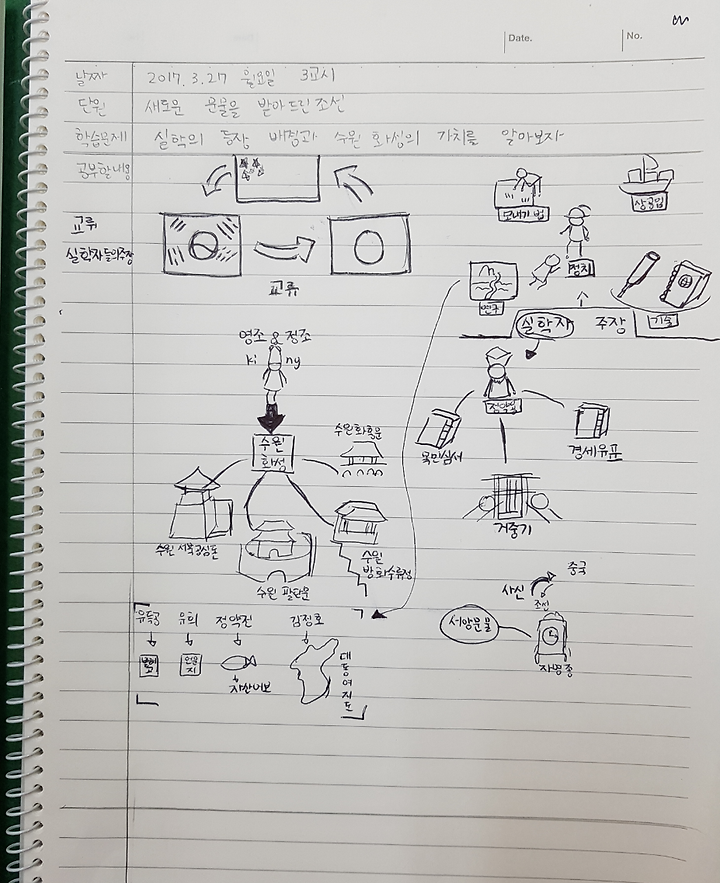 Date.
No.
날짜 2017. 3. 27 월요일 3교시
단원 새로운 문물을 받아드린 조선
학습문제 실학의 등장 배경과 수원 화성의 가치를 알아보자
공부할내용
교류
실학자들의주장
교류
모내기법
상공업
정치
연구
기술
실학자 주장
영조 & 정조
Ki ng
수원
화성
수원화홍문
수원 서북공심돈
수원 팔달문
수원
방화수류정
정약용
목민심서
경세유표
거중기
유득공 유희 정약전 김정호
발해고
언문지
자산어보
대동여지도
중국
사신
조선
서양문물
자명종